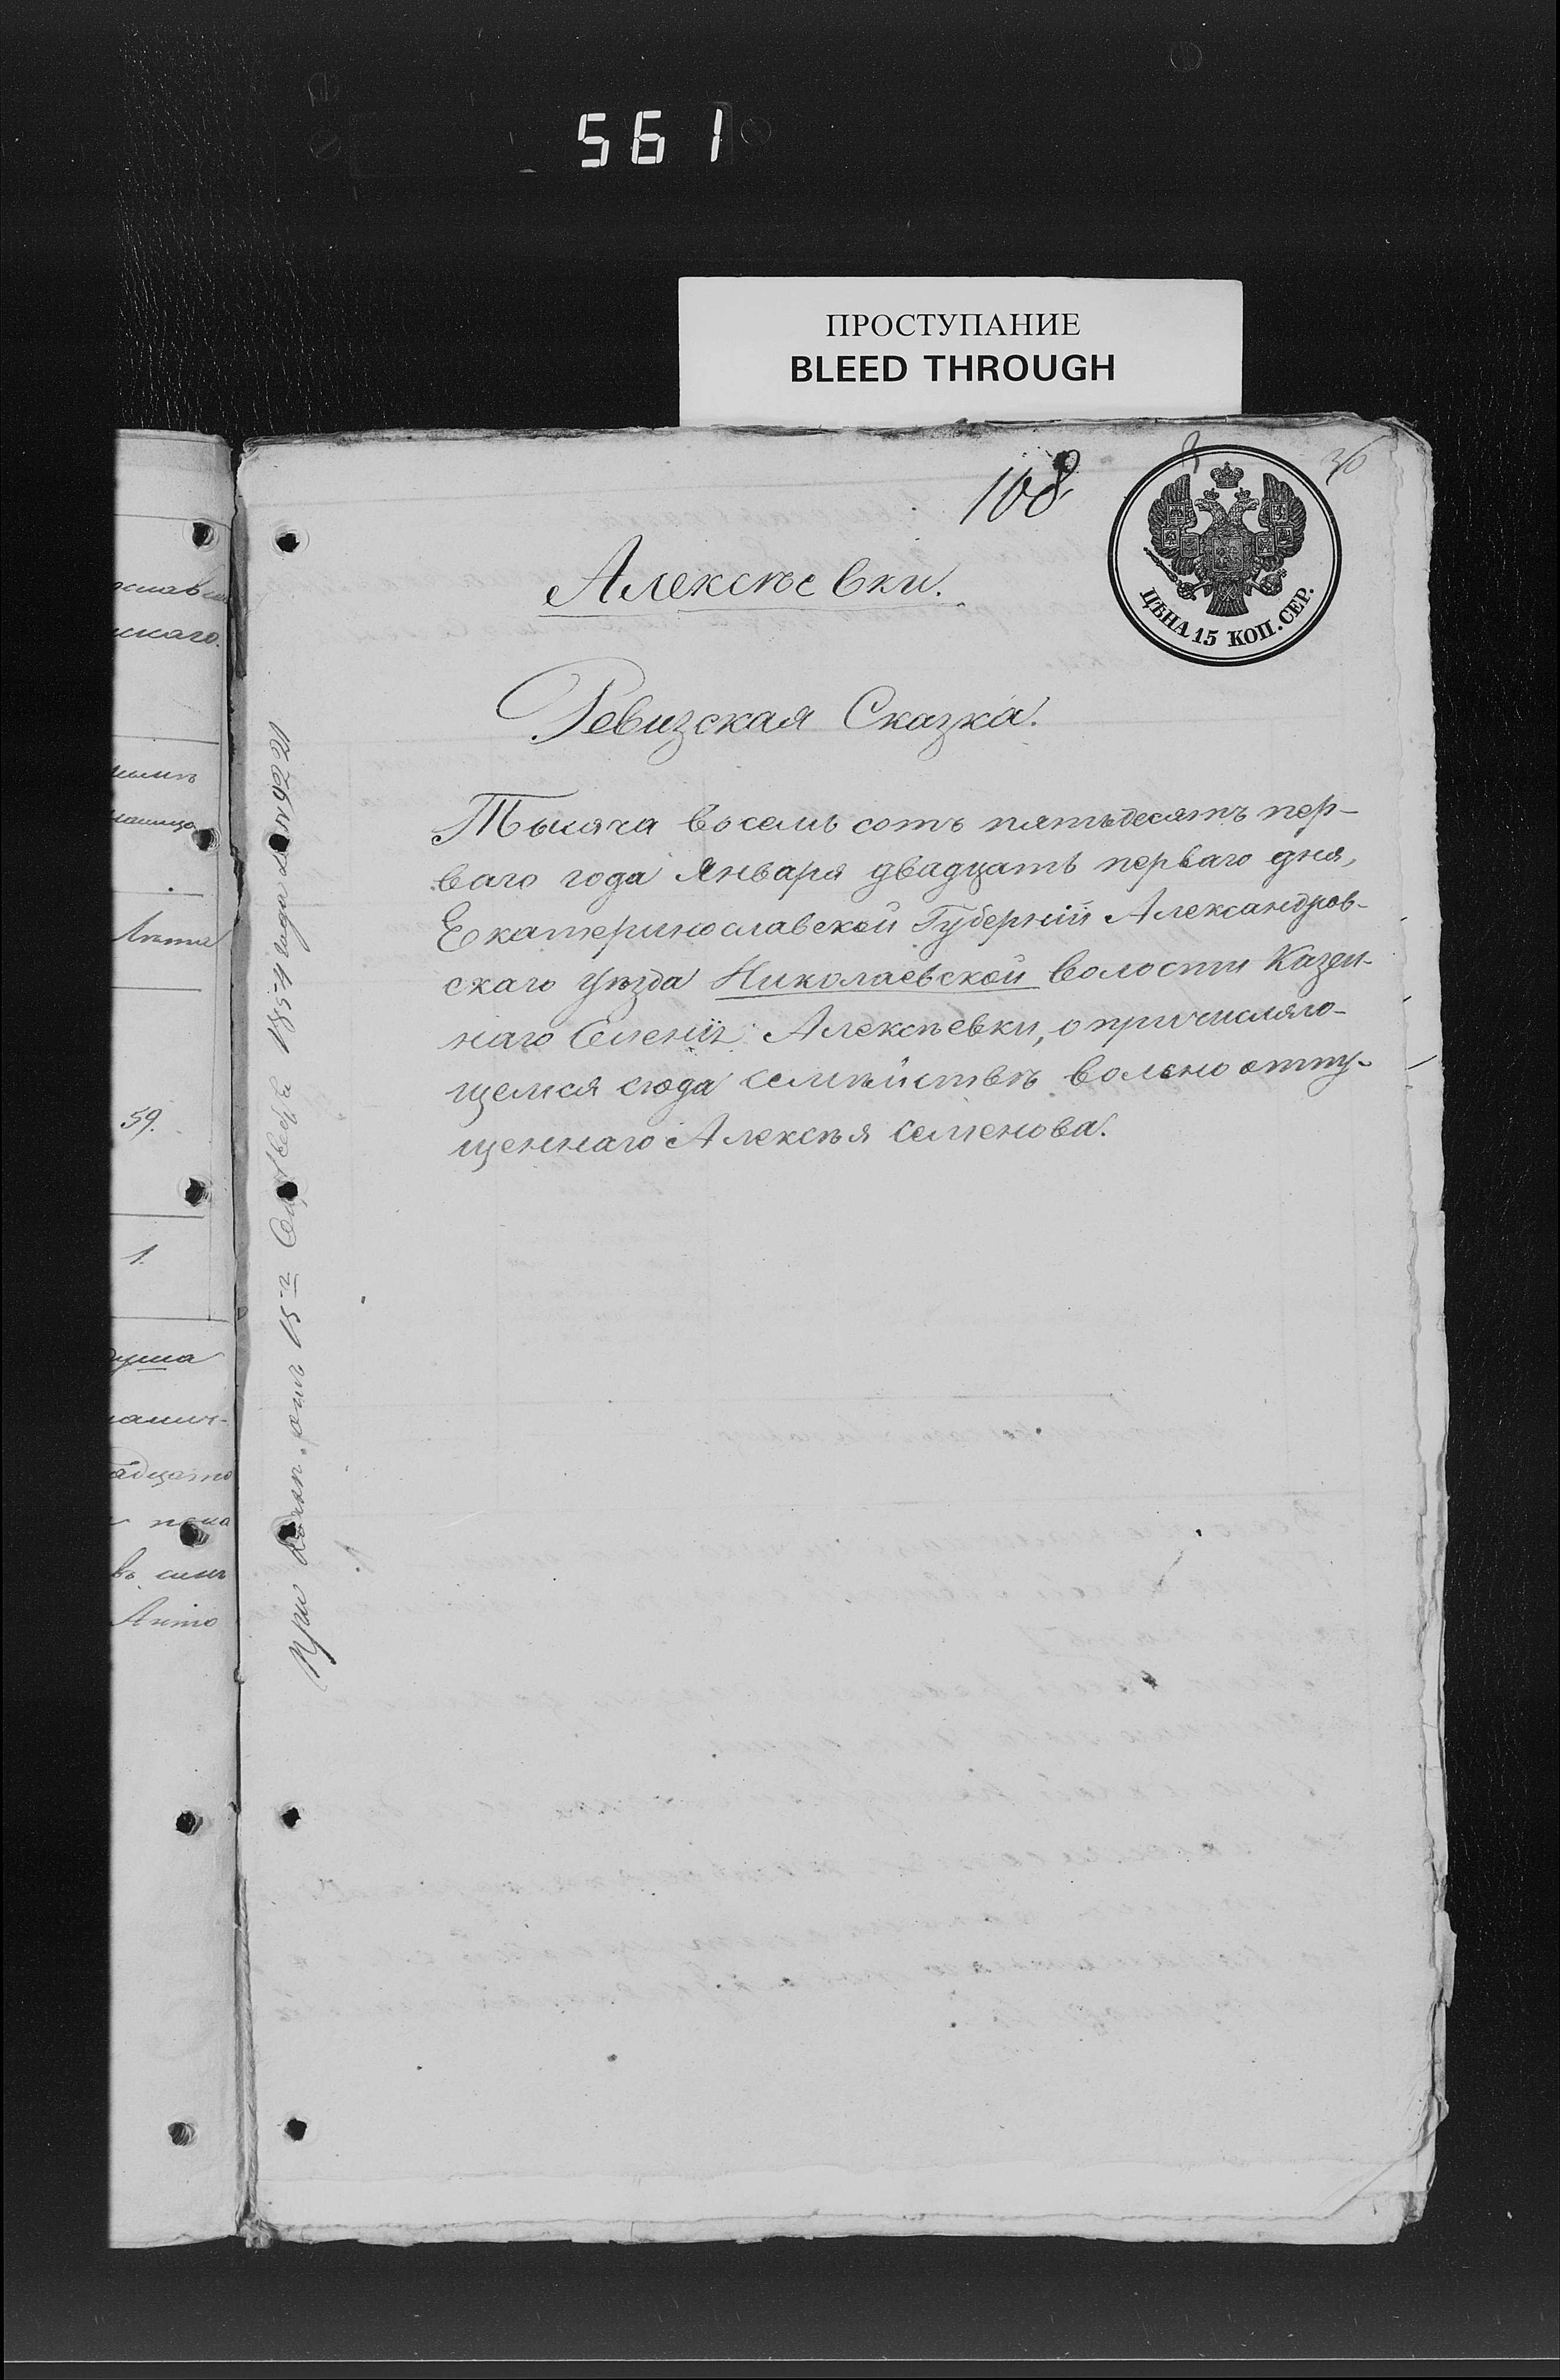 561
ПРОСТУПАНИЕ
BLEED THROUGH
108
36
ЦѢНА 15 КОП. СЕР.
Алексѣевки.
Ревизская Сказка.
Тысяча восемь сотъ пятьдесятъ пер-
ваго года Января двадцать перваго дня,
Екатеринославской Губерніи Александров-
скаго уѣзда Николаевской волости Казен-
наго Селенія Алексѣевки, о причисляю-
щемся сюда семѣйствѣ вольно отпу-
щеннаго Алексѣя Семенова.
1851 года
отъ 15-г
При
скаго.
Анна
59.
1.
душа
въ